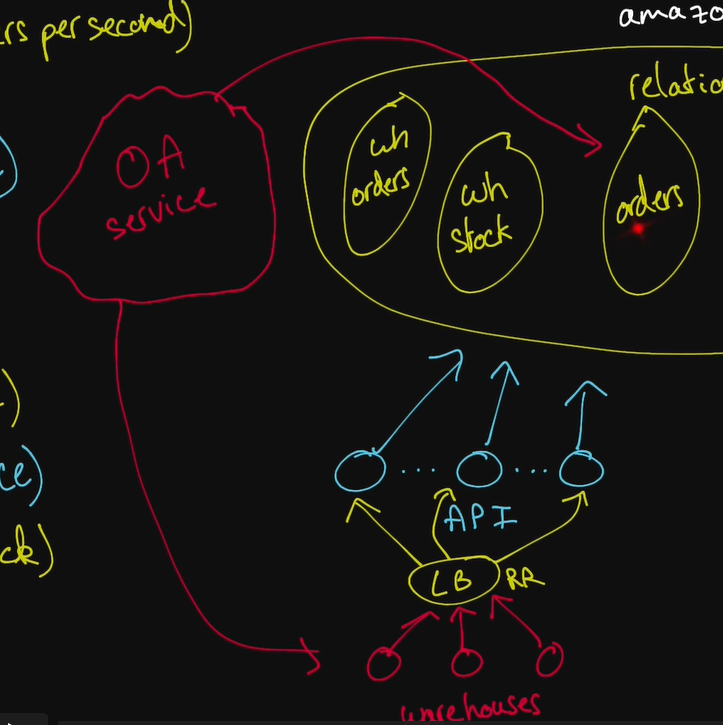 rs per second)
amazo
relatio
OA
service
wh
orders
wh
stock
orders
ce)
ck)
API
LB RR
warehouses